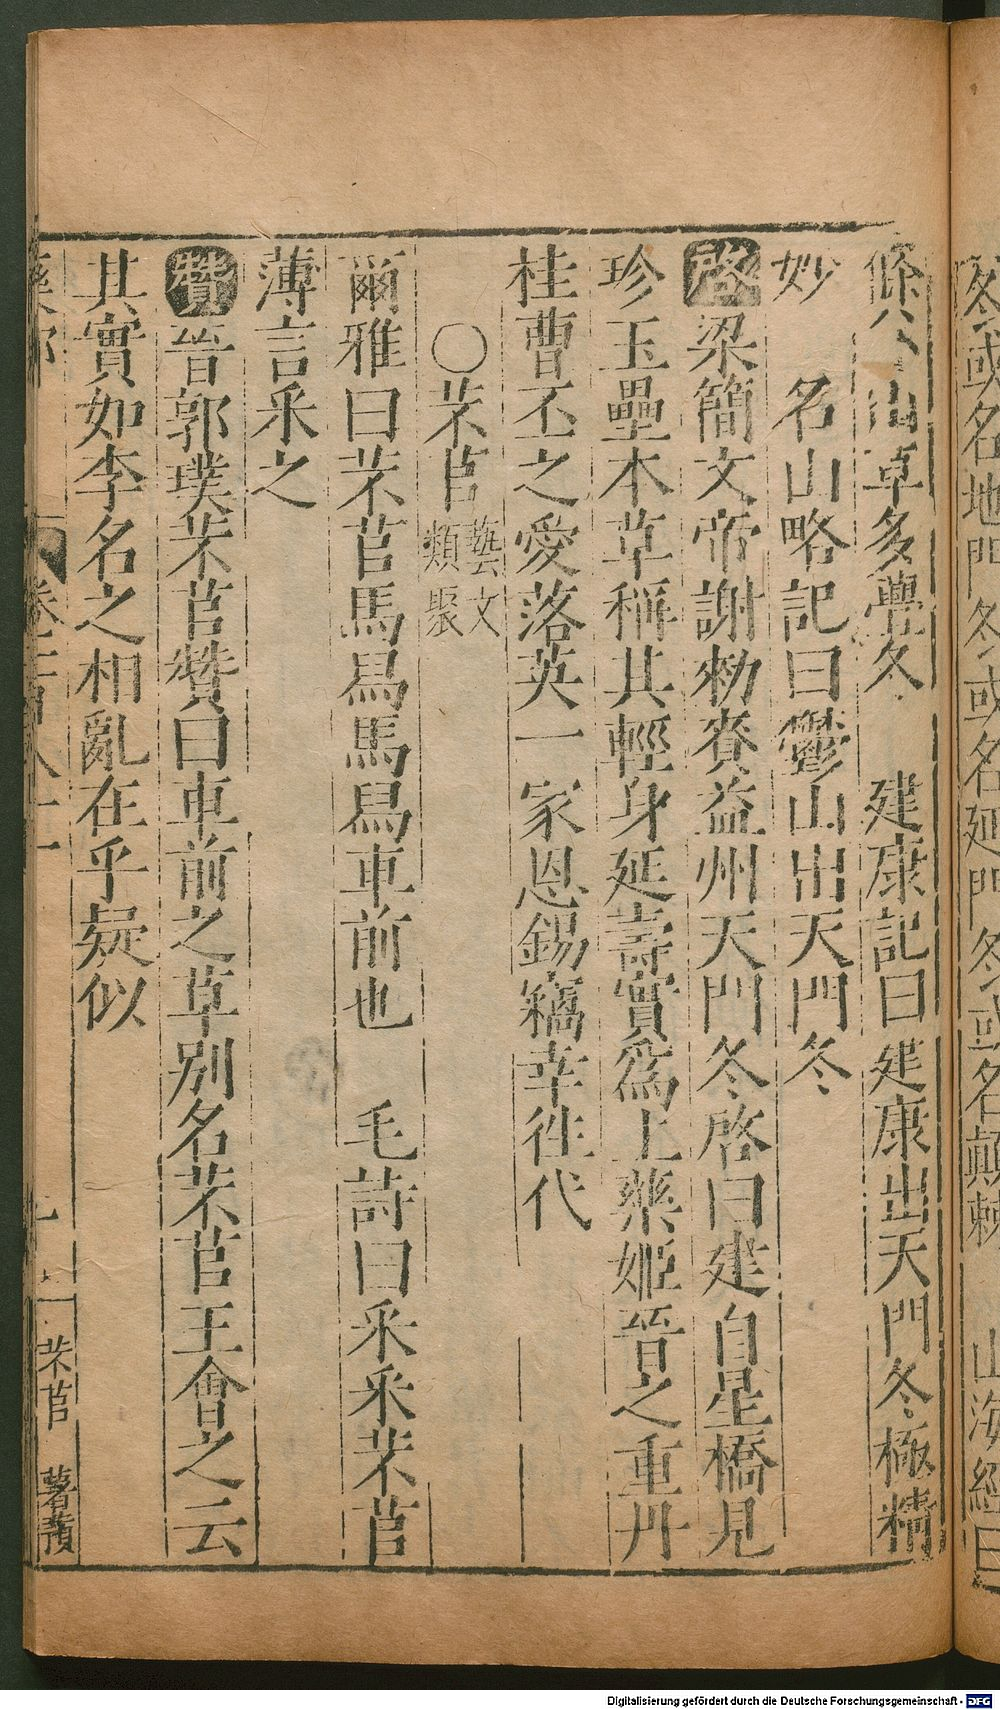 冬或名地門冬或名延門冬或名顛棘　山海經曰
條谷山草多亹冬　建康記曰建康出天門冬極精
妙　名山略記曰鬱山出天門冬
啓梁簡文帝謝勑賚益州天門冬啓曰建自星橋見
珍玉壘本草稱其輕身延壽實爲上藥姬晉之重丹
桂曹丕之愛落英一家恩錫竊幸徃代
○芣苢藝文類聚
爾雅曰芣苢馬舄馬舄車前也　毛詩曰采采芣苢
薄言采之
贊晉郭璞芣苢贊曰車前之草別名芣苢王會之云
其實如李名之相亂在乎疑似
芣苢　薯蕷
Digitalisierung gefördert durch die Deutsche Forschungsgemeinschaft - DFG